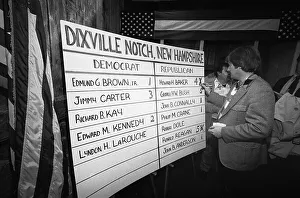 DIXVILLE NOTCH, NEW HAMPSHIRE
DEMOCRAT REPUBLICAN
EDMUND G. BROWN, JR. 1 HOWARD H. BAKER 4
JIMMY CARTER 3 GEORGE BUSH
RICHARD B. KAY JOHN B. CONNALLY 1
EDWARD M. KENNEDY 2 PHILIP M. CRANE
LYNDON H. LAROUCHE DOLE
RONALD REAGAN 5
JOHN B. ANDERSON